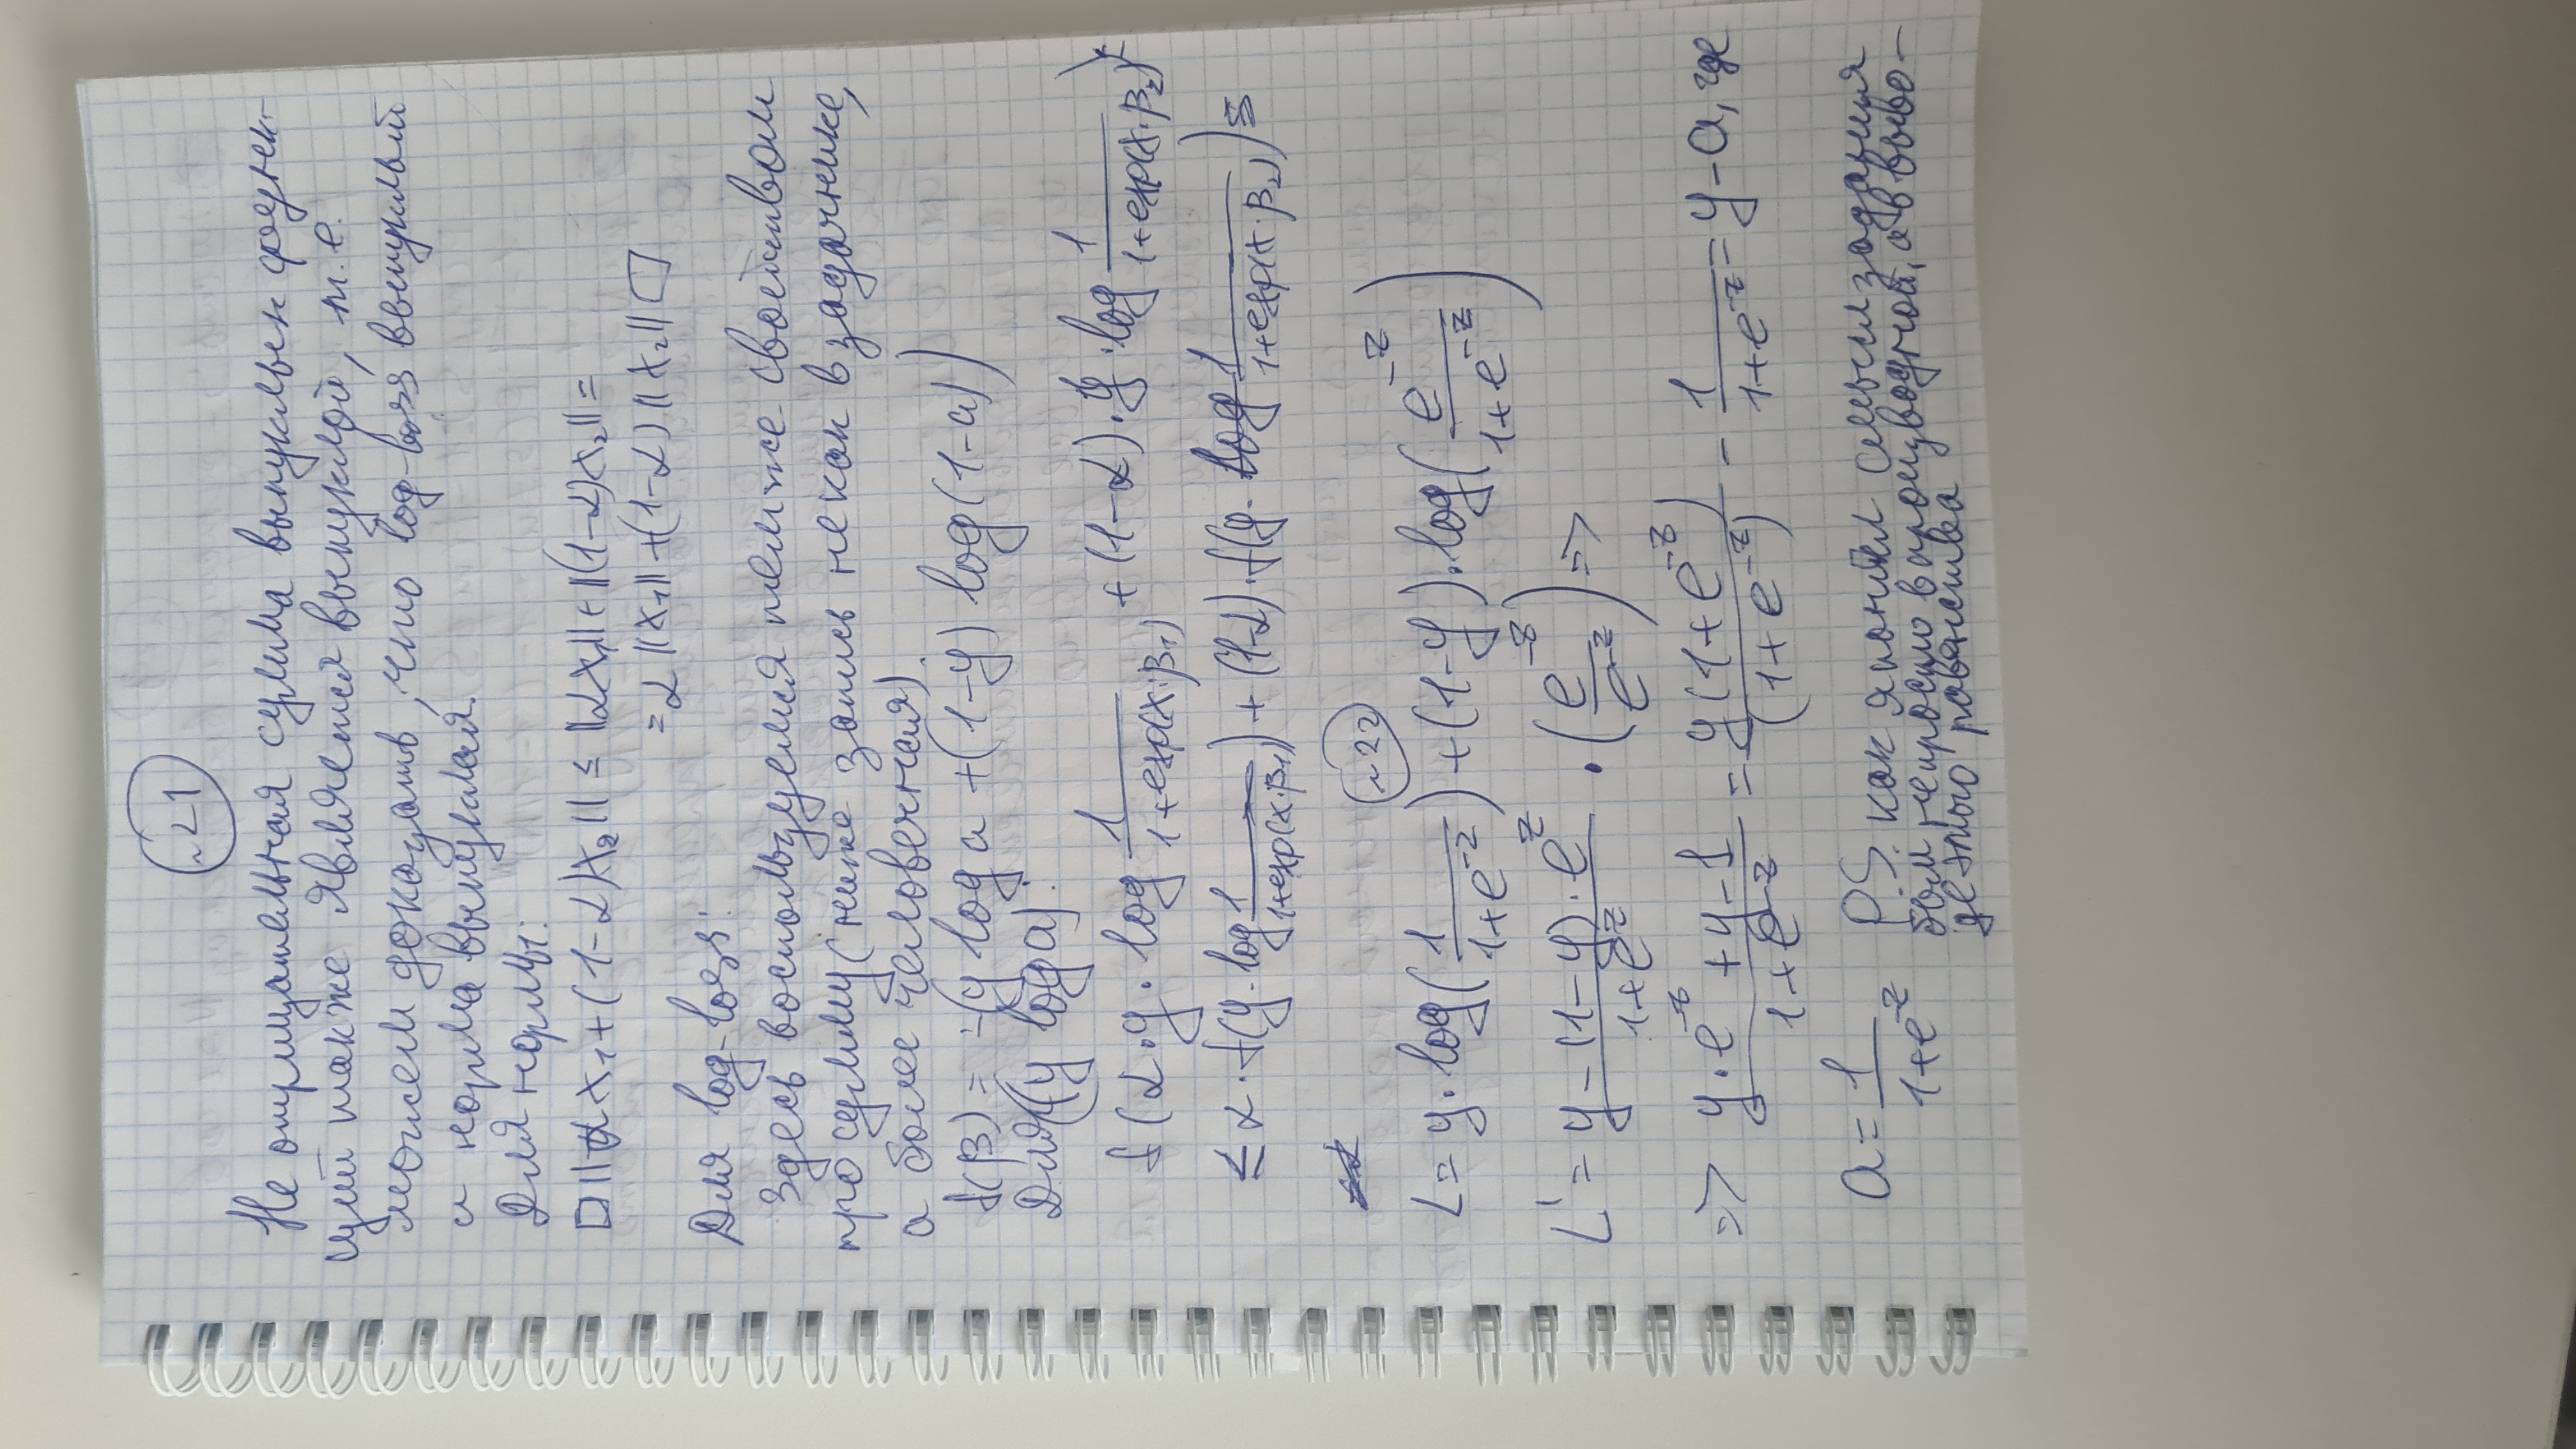 ~21
Не отрицательная сумма выпуклых функ-
ций также является выпуклой, т.е.
можем доказать, что log-loss выпуклый
и норма выпуклая.
Для нормы:
□ ||αx₁+(1-α)x₂|| ≤ ||αx₁||+||(1-α)x₂|| =
= α||x₁||+(1-α)||x₂|| □
Для log-loss:
Здесь воспользуемся тем же свойством
про сумму (ниже запись не как в задачнике,
а более человечная).
f(β) = -(y log a + (1-y) log(1-a))
Для (y log a):
f(α·y·log 1/(1+exp(x·β₁)) + (1-α)·y·log 1/(1+exp(x·β₂))) ≤
≤ α·f(y·log 1/(1+exp(x·β₁))) + (1-α)·f(y·log 1/(1+exp(x·β₂))) ≤
~22
L = y·log(1/(1+e^-z)) + (1-y)·log(e^-z/(1+e^-z))
L' = (y-(1-y)·e^z)/(1+e^z) · (e^-z/e^-z) =>
=> (y·e^-z+y-1)/(1+e^-z) = y(1+e^-z)/(1+e^-z) - 1/(1+e^-z) = y-a, где
a = 1/(1+e^-z) P.S. как я понял смысл задания
был не просто в производной, а в выво-
де этого равенства